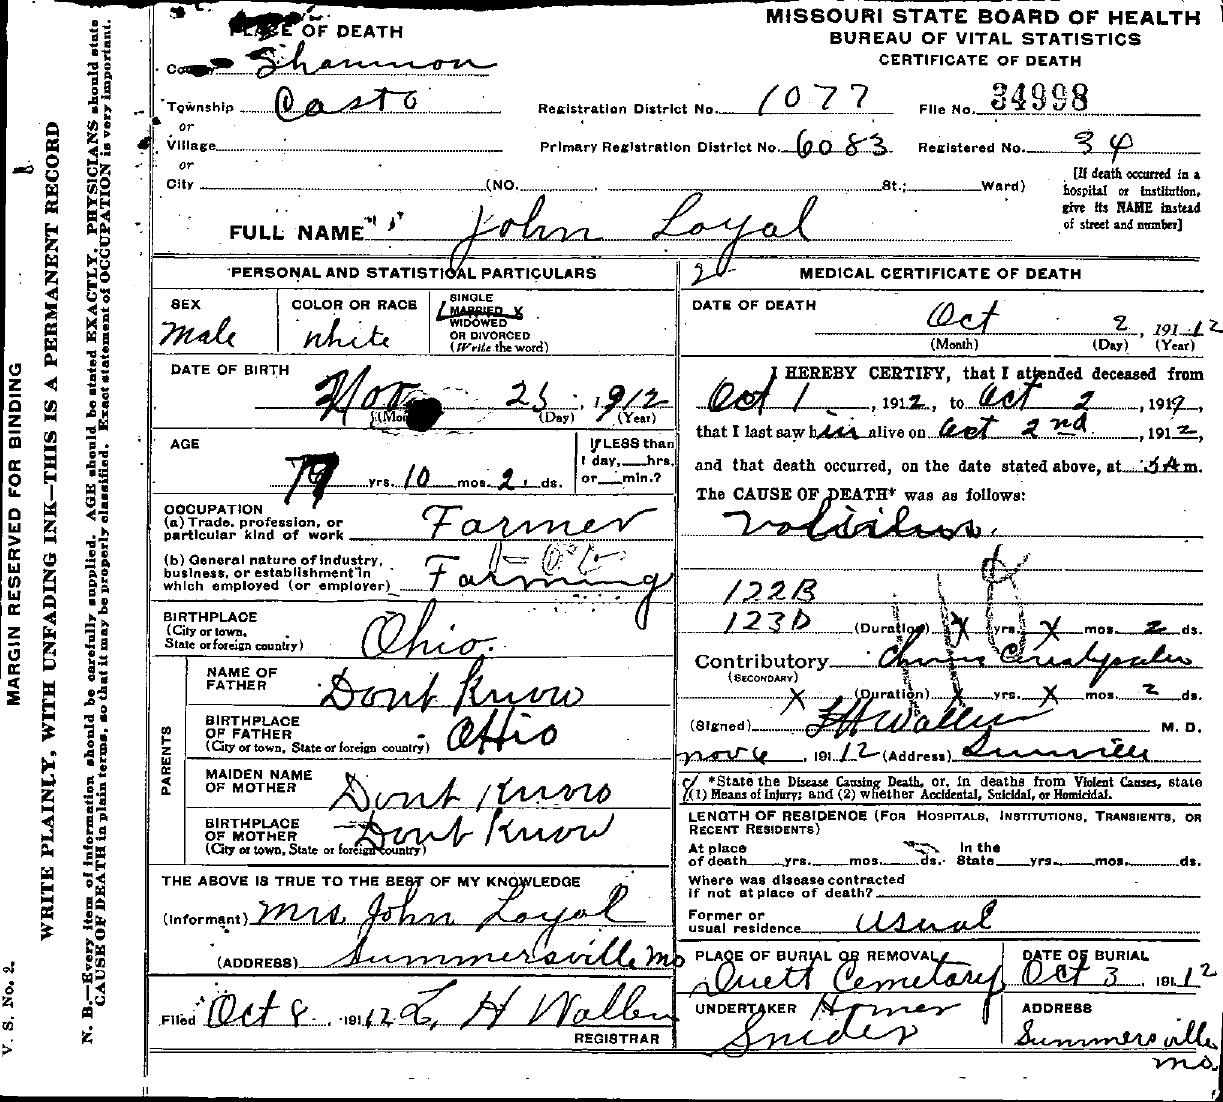 MISSOURI STATE BOARD OF HEALTH
BUREAU OF VITAL STATISTICS
CERTIFICATE OF DEATH
PLACE OF DEATH
County Shannon
Township Casto
or
Village
or
City (NO. St.; Ward)
Registration District No. 1077 File No. 34998
Primary Registration District No. 6083 Registered No. 34
[If death occurred in a
hospital or institution,
give its NAME instead
of street and number]
FULL NAME John Loyal
PERSONAL AND STATISTICAL PARTICULARS
SEX
Male
COLOR OR RACE
White
SINGLE
MARRIED X
WIDOWED
OR DIVORCED
(Write the word)
DATE OF BIRTH
Nov 25, 1912
(Day) (Year)
AGE
79 yrs. 10 mos. 2 ds.
If LESS than
1 day, hrs.
or min.?
OCCUPATION
(a) Trade, profession, or
particular kind of work Farmer
(b) General nature of industry,
business, or establishment in
which employed (or employer) Farming
BIRTHPLACE
(City or town,
State or foreign country) Ohio.
PARENTS
NAME OF
FATHER Dont Know
BIRTHPLACE
OF FATHER
(City or town, State or foreign country) Ohio
MAIDEN NAME
OF MOTHER Dont Know
BIRTHPLACE
OF MOTHER
(City or town, State or foreign country) Dont Know
THE ABOVE IS TRUE TO THE BEST OF MY KNOWLEDGE
(Informant) Mrs. John Loyal
(ADDRESS) Summersville Mo
Filed Oct 8, 1912 L. H Wallen
REGISTRAR
20
MEDICAL CERTIFICATE OF DEATH
DATE OF DEATH
Oct 2, 191 12
(Month) (Day) (Year)
I HEREBY CERTIFY, that I attended deceased from
Oct 1, 1912, to Oct 2, 1912,
that I last saw him alive on Oct 2nd, 1912,
and that death occurred, on the date stated above, at 3 A m.
The CAUSE OF DEATH* was as follows:
122B
123D (Duration) X yrs. X mos. 2 ds.
Contributory
(SECONDARY)
X (Duration) X yrs. X mos. 2 ds.
(Signed) Wallen M. D.
Nov 6, 191 12 (Address)
*State the Disease Causing Death, or, in deaths from Violent Causes, state
(1) Means of Injury; and (2) whether Accidental, Suicidal, or Homicidal.
LENGTH OF RESIDENCE (FOR HOSPITALS, INSTITUTIONS, TRANSIENTS, OR
RECENT RESIDENTS)
At place In the
of death yrs. mos. ds. State yrs. mos. ds.
Where was disease contracted
if not at place of death?
Former or
usual residence Usual
PLACE OF BURIAL OR REMOVAL
Duett Cemetary
DATE OF BURIAL
Oct 3, 191 12
UNDERTAKER Homer
Snider
ADDRESS
Summersville
Mo.
MARGIN RESERVED FOR BINDING
WRITE PLAINLY, WITH UNFADING INK—THIS IS A PERMANENT RECORD
N. B.—Every item of information should be carefully supplied. AGE should be stated EXACTLY. PHYSICIANS should state
CAUSE OF DEATH in plain terms, so that it may be properly classified. Exact statement of OCCUPATION is very important.
V. S. No. 2.